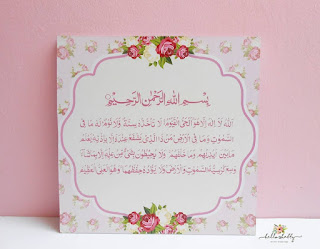 بِسْمِ اللهِ الرَّحْمٰنِ الرَّحِيْمِ
اَللهُ لَا اِلٰهَ اِلَّا هُوَ الْحَيُّ الْقَيُّوْمُ لَا تَأْخُذُهٗ سِنَةٌ وَّلَا نَوْمٌ لَهٗ مَا فِى
السَّمٰوٰتِ وَمَا فِى الْاَرْضِ مَنْ ذَا الَّذِيْ يَشْفَعُ عِنْدَهٗ اِلَّا بِاِذْنِهٖ يَعْلَمُ
مَا بَيْنَ اَيْدِيْهِمْ وَمَا خَلْفَهُمْ وَلَا يُحِيْطُوْنَ بِشَيْءٍ مِّنْ عِلْمِهٖ اِلَّا بِمَا شَآءَ
وَسِعَ كُرْسِيُّهُ السَّمٰوٰتِ وَالْاَرْضَ وَلَا يَـُٔوْدُهٗ حِفْظُهُمَا وَهُوَ الْعَلِيُّ الْعَظِيْمُ